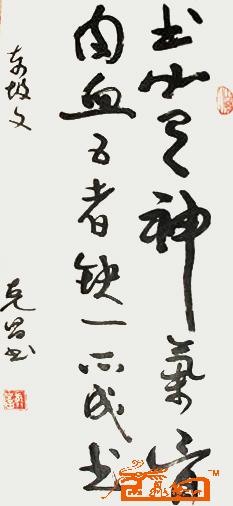 书必有神氣骨
肉血五者缺一不成书
东坡文
克昌书